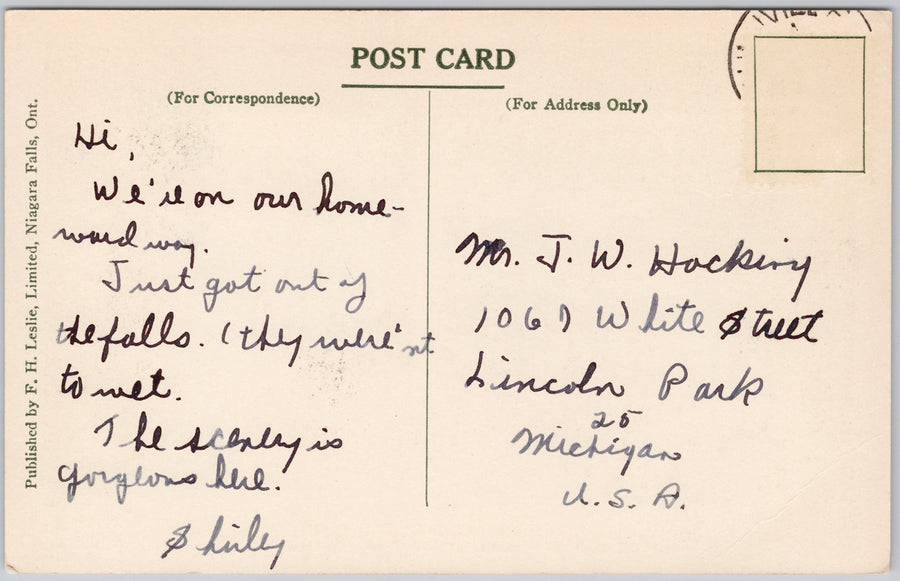 POST CARD
(For Correspondence)
(For Address Only)
Published by F. H. Leslie, Limited, Niagara Falls, Ont.
Hi,
We're on our home-
ward way.
Just got out of
the falls. (they were'nt
to wet.
The scenery is
gorgeous here.
Shirley
Mr. J. W. Hocking
1067 White Street
Lincoln Park
25
Michigan
U. S. A.